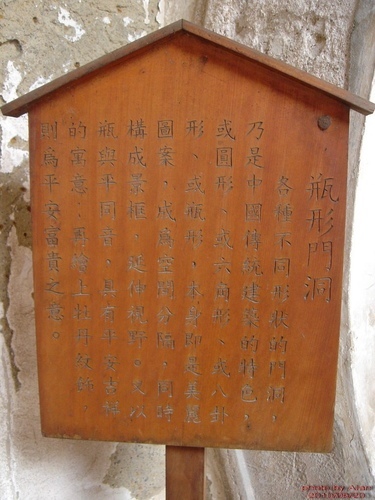 瓶形門洞
各種不同形狀的門洞，
乃是中國傳統建築的特色，
或圓形、或六角形、或八卦
形、或瓶形，本身即是美麗
圖案，成為空間分隔，同時
構成景框，延伸視野。又以
瓶與平同音，具有平安吉祥
的寓意，再繪上牡丹紋飾，
則為平安富貴之意。